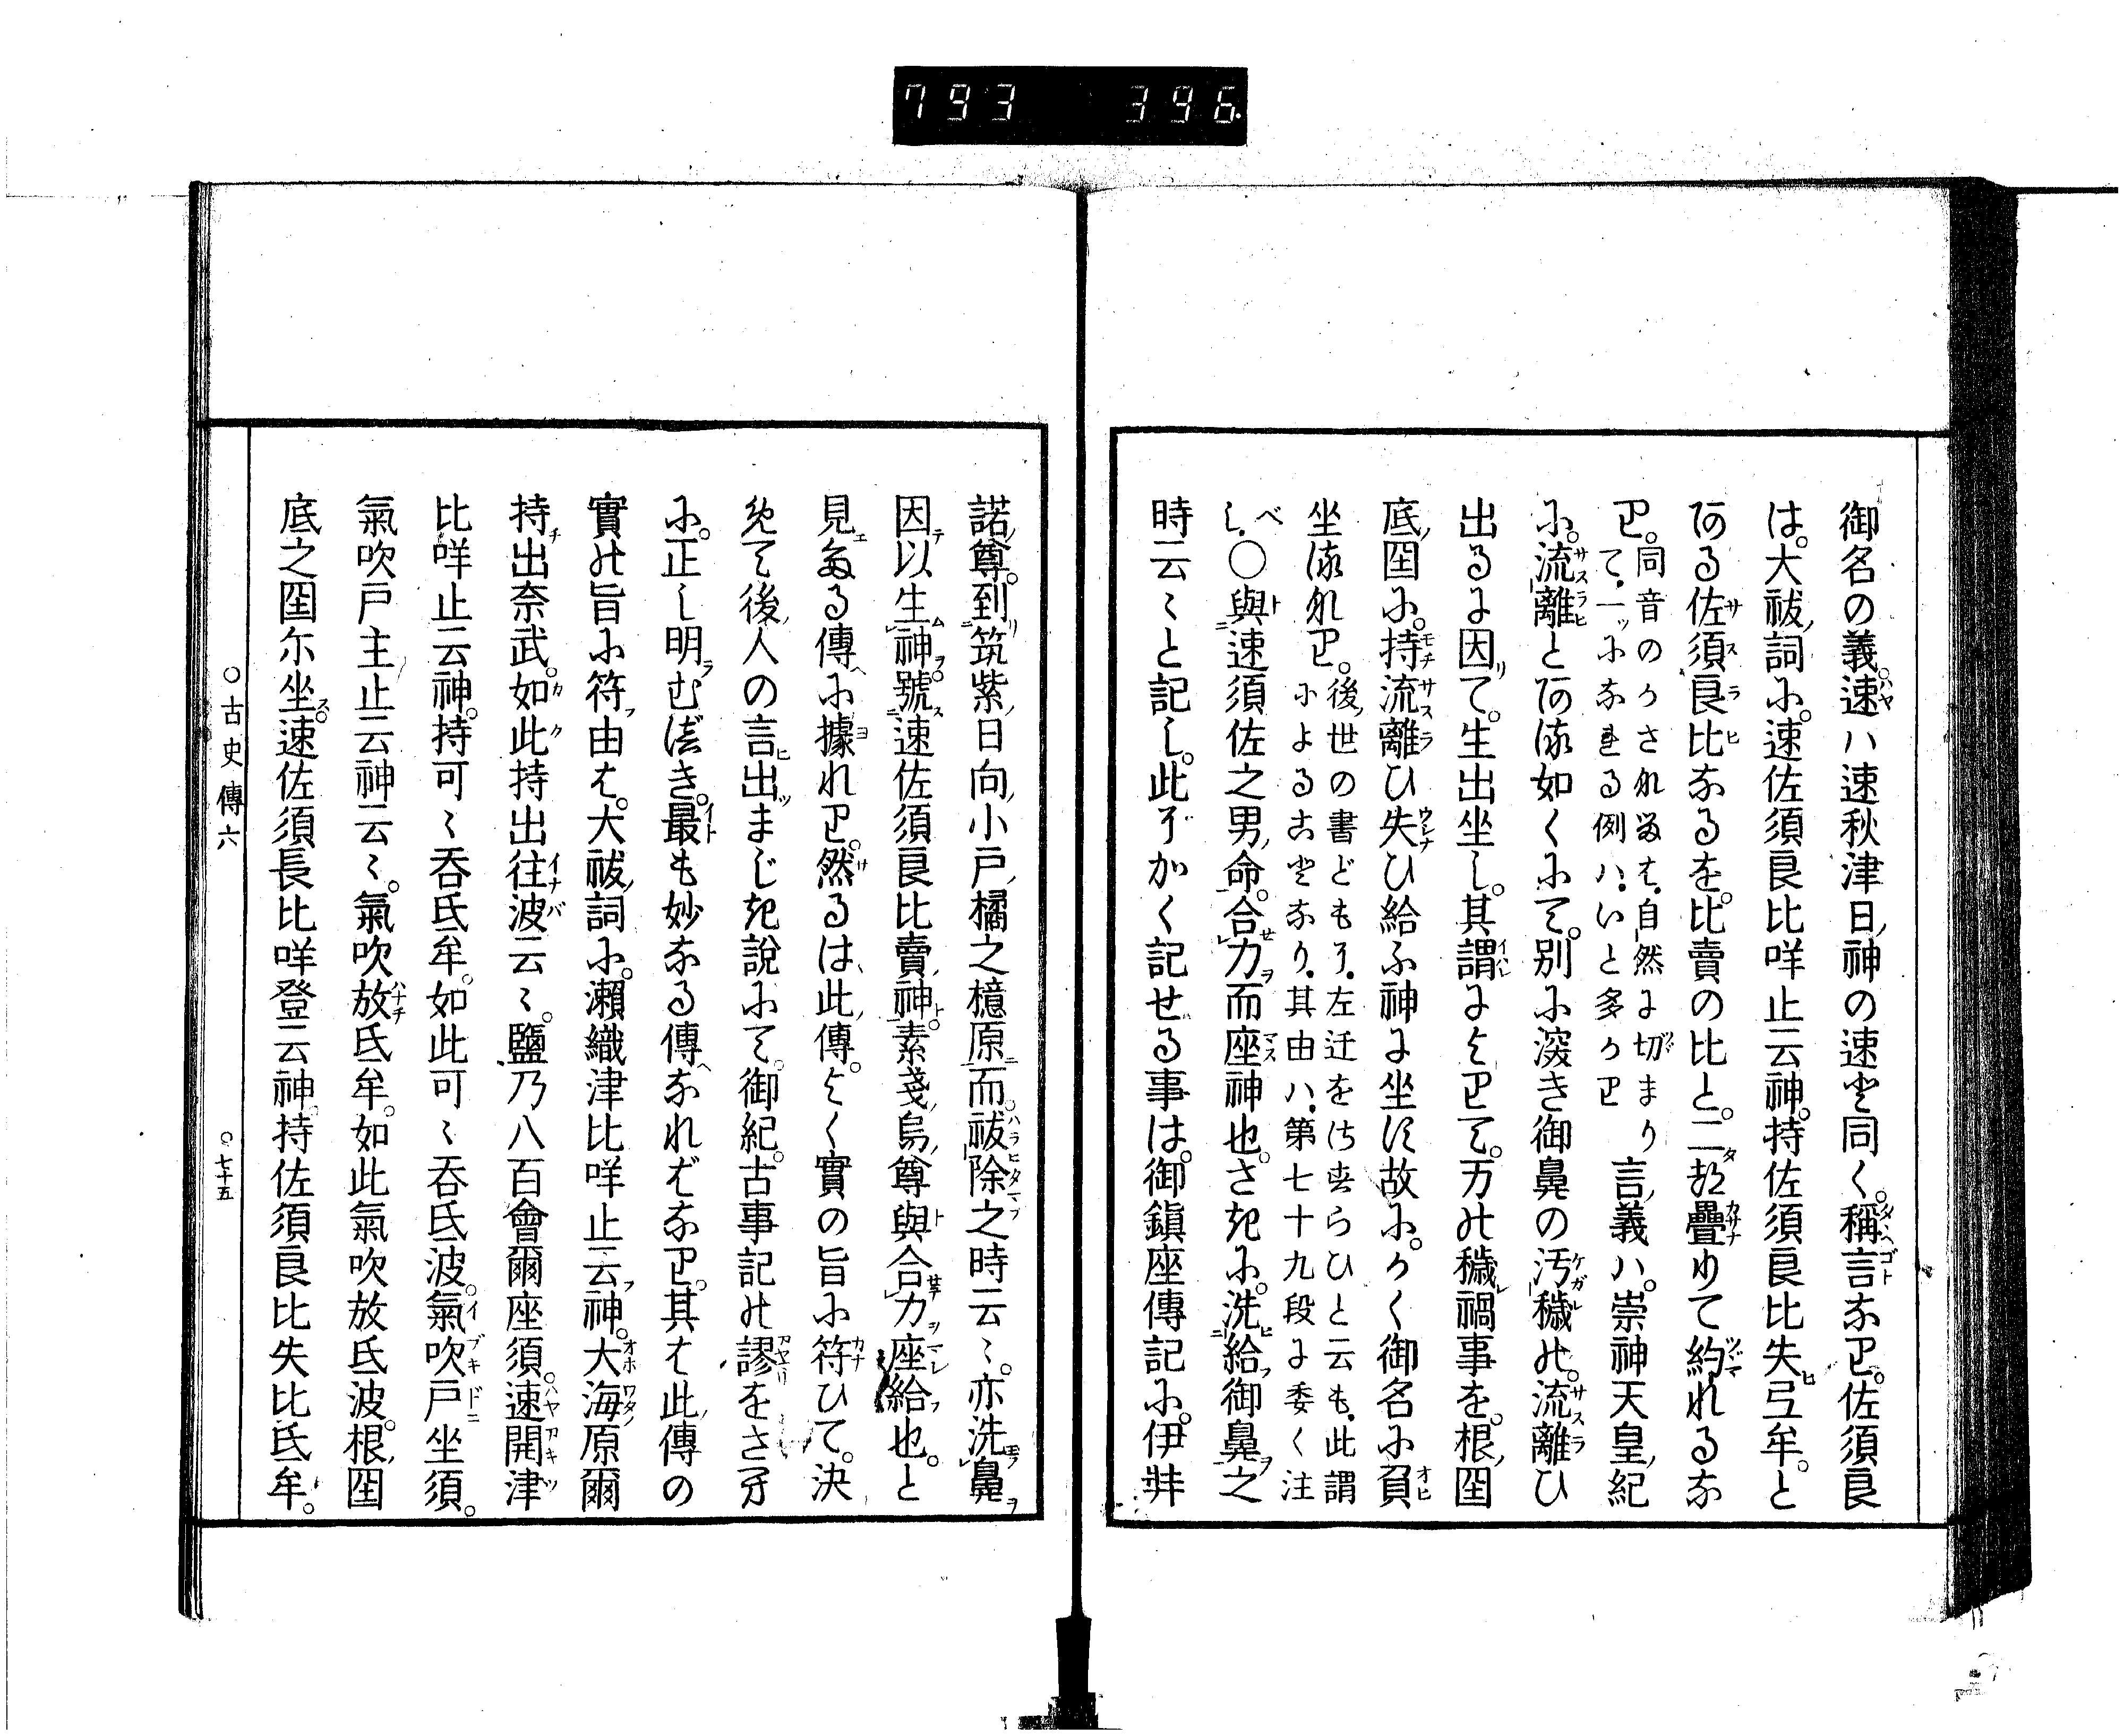 793 396.
御名の義。速ハ速秋津日神の速と同く。稱言なり。佐須良
は。大祓詞に。速佐須良比咩止云神。持佐須良比失弖牟。と
ある佐須良比なるを。比賣の比と。二つ疊りて約れるな
り。同音のかされるは。自然に切まり
て。一ッになれる例ハ。いと多かり
言義ハ。崇神天皇紀
に。流離とある如くにて。別に深き御鼻の汚穢の。流離ひ
出るに因て。生出坐し。其謂によりて。万の穢禍事を。根國
底國に。持流離ひ失ひ給ふ神に坐す故に。かく御名に負
坐るなり。後世の書どもに。左迁をはすらひと云も。此謂
によることなり。其由ハ。第七十九段に委く注
べし。○與速須佐之男命。合力而座神也。さきに。洗給御鼻之
時云〻と記し。此にかく記せる事は。御鎭座傳記に。伊弉
諾尊。到筑紫日向小戸橘之檍原而。祓除之時云〻。亦洗鼻
因以生神。號速佐須良比賣神。素戔烏尊與合力座給也。と
見えたる傳に據れり。然るは此傳。よく實の旨に符ひて。決
めて後人の言出まじき說にて。御紀。古事記の謬をさへ
に。正し明むべき。最も妙なる傳なればなり。其は此傳の
實の旨に符由は。大祓詞に。瀨織津比咩止云神。大海原爾
持出奈武。如此持出往波云〻。鹽乃八百會爾座須。速開津
比咩止云神。持可〻呑氐牟。如此可〻呑氐波。氣吹戸坐須。
氣吹戸主止云神云〻。氣吹放氐牟。如此氣吹放氐波。根國
底之國尓坐。速佐須良比咩登云神。持佐須良比失比氐牟。
○古史傳六 ○七十五